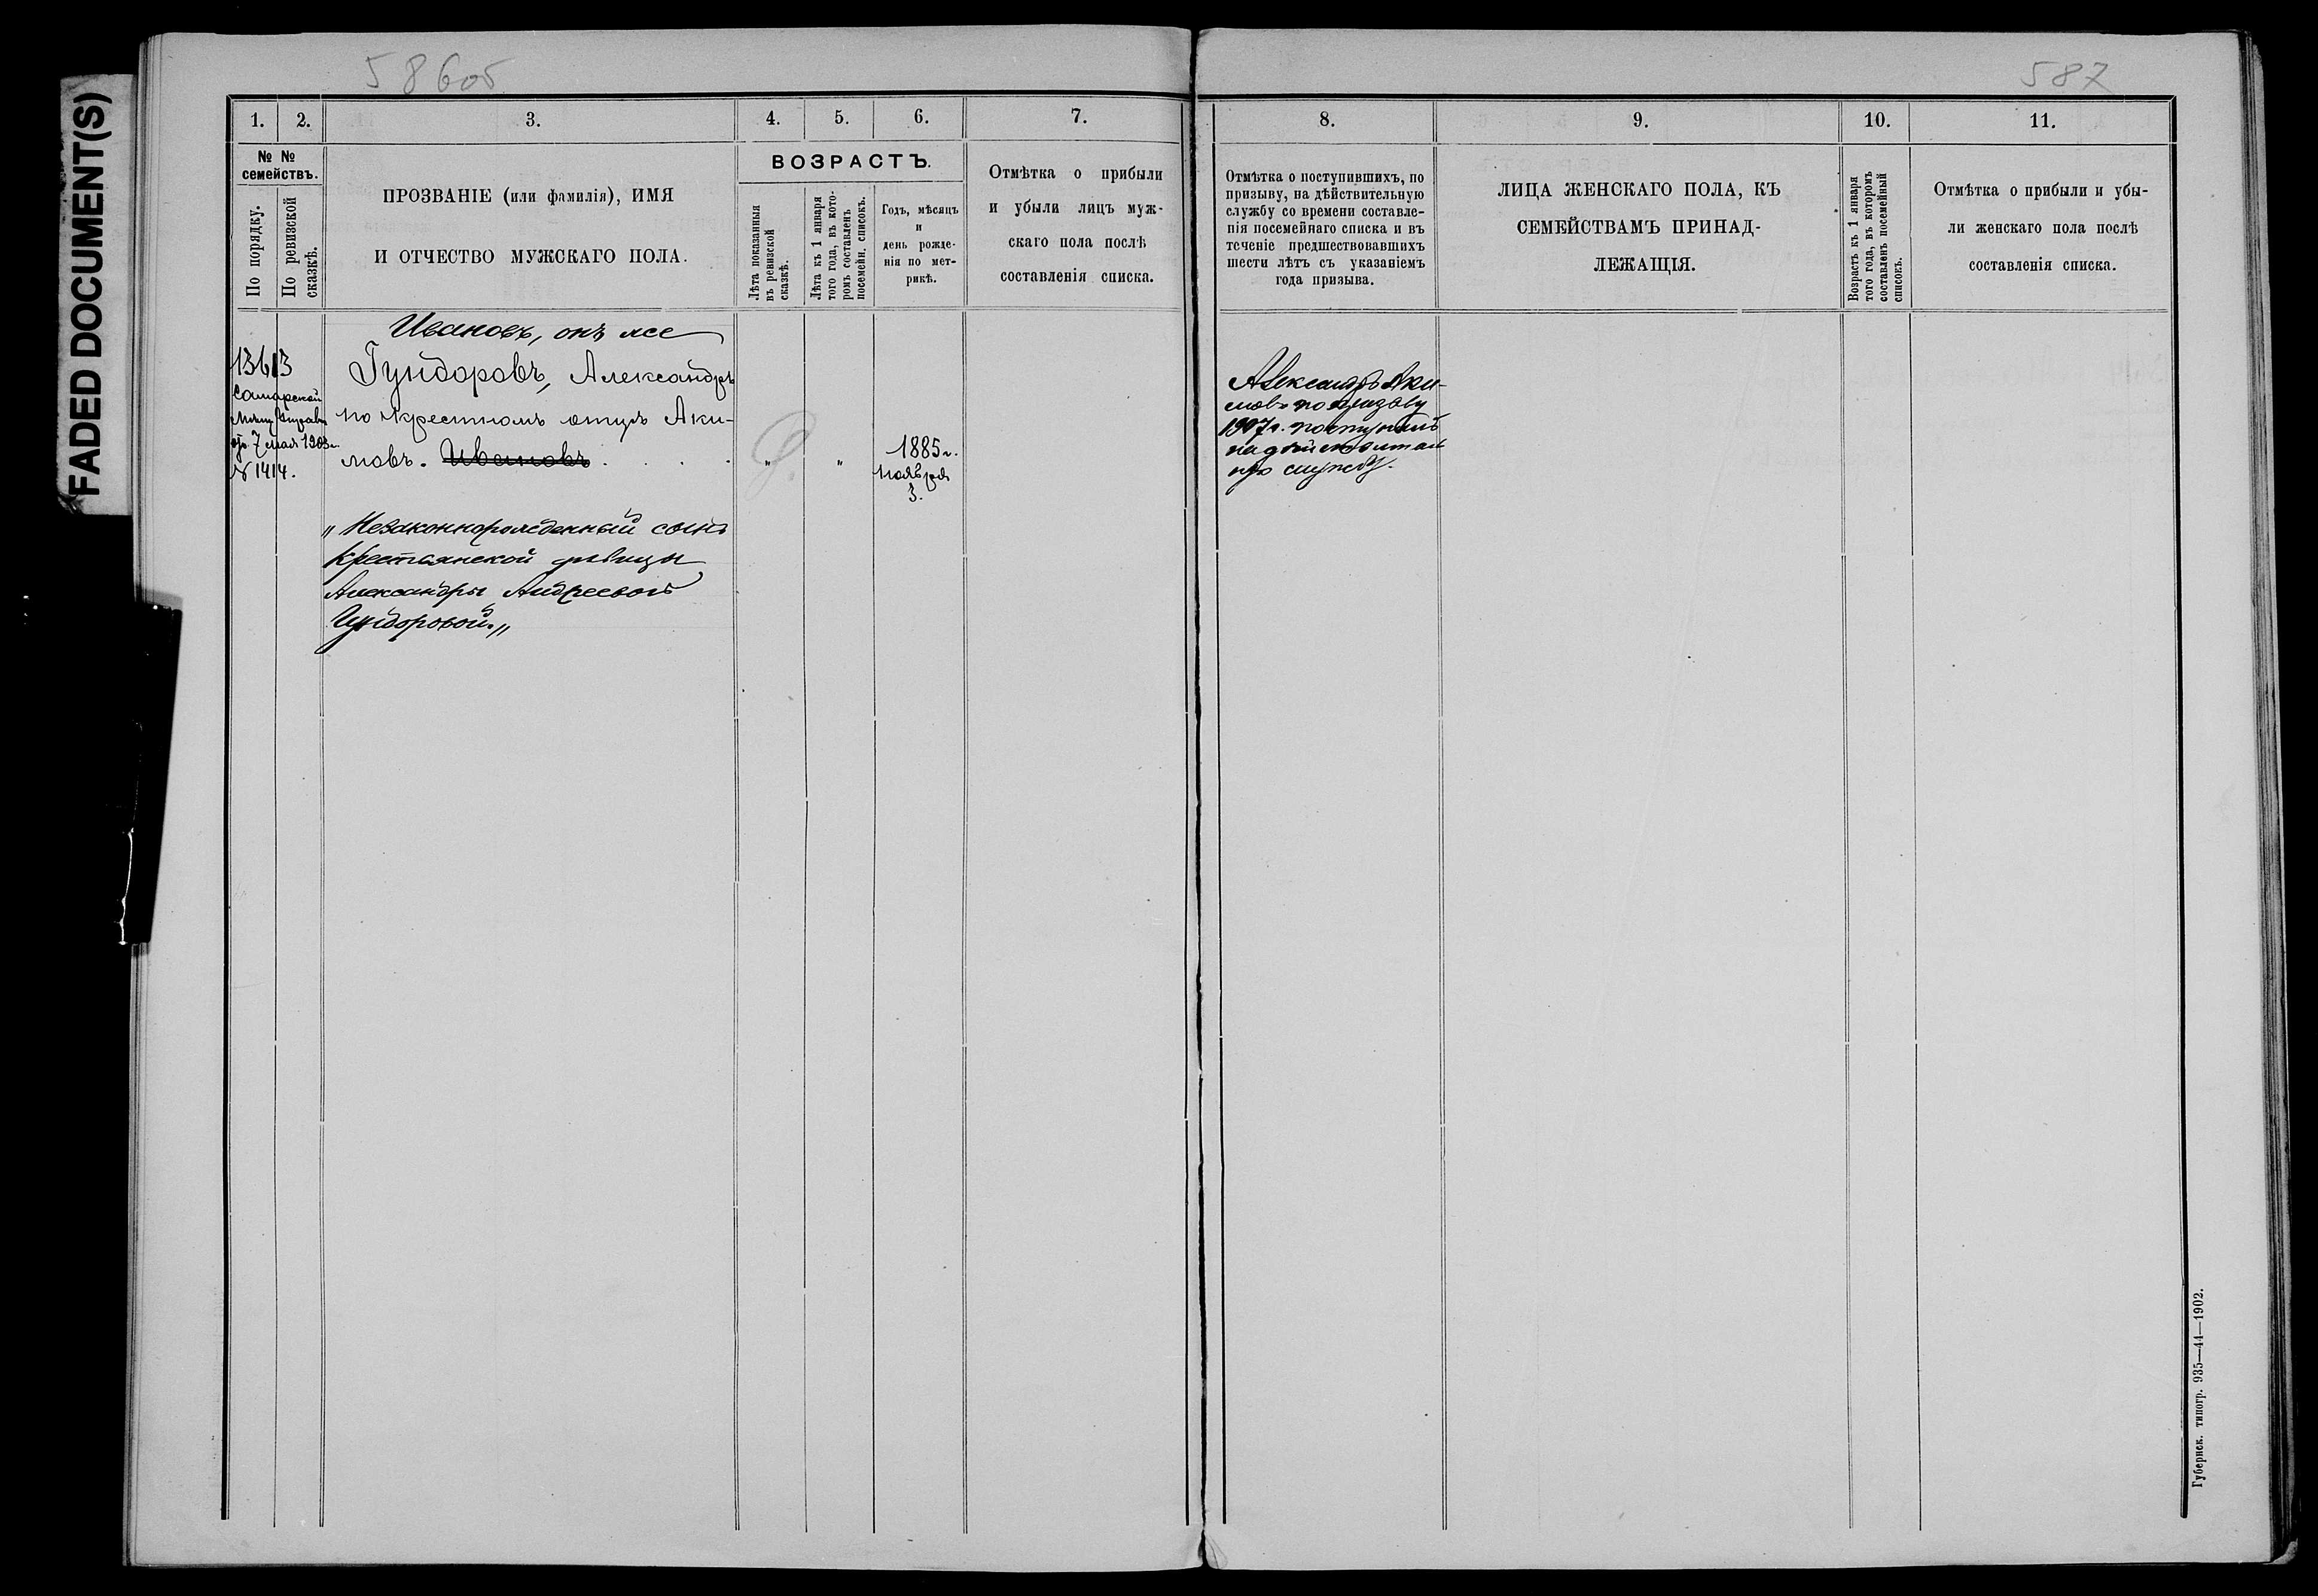 FADED DOCUMENT(S)
586об
587
1. 2. 3. 4. 5. 6. 7.
№ №
семействъ.
По порядку.
По ревизской
сказкѣ.
ПРОЗВАНІЕ (или фамилія), ИМЯ
И ОТЧЕСТВО МУЖСКАГО ПОЛА.
ВОЗРАСТЪ.
Лѣта показанныя
въ ревизской
сказкѣ.
Лѣта къ 1 января
того года, въ кото-
ромъ составленъ
посемейн. списокъ.
Годъ, мѣсяцъ
и
день рожде-
нія по мет-
рикѣ.
Отмѣтка о прибыли
и убыли лицъ муж-
скаго пола послѣ
составленія списка.
13613
Самарской
Мѣщ. Управы
отъ 7 мая 1903 г.
№ 1414.
Ивановъ, онъ же
Гундоровъ, Александръ
по крестномъ отцѣ Аки-
мовъ. Ивановъ . . . .
„ „
1885 г.
Ноября
3.
„Незаконнорожденный сынъ
крестьянской дѣвицы
Александры Андреевой
Гундоровой„
8. 9. 10. 11.
Отмѣтка о поступившихъ, по
призыву, на дѣйствительную
службу со времени составле-
нія посемейнаго списка и въ
теченіе предшествовавшихъ
шести лѣтъ съ указаніемъ
года призыва.
ЛИЦА ЖЕНСКАГО ПОЛА, КЪ
СЕМЕЙСТВАМЪ ПРИНАД-
ЛЕЖАЩІЯ.
Возрастъ къ 1 января
того года, въ которомъ
составленъ посемейный
списокъ.
Отмѣтка о прибыли и убы-
ли женскаго пола послѣ
составленія списка.
Александръ Аки-
мовъ по призыву
1907 г. поступилъ
на дѣйствитель
ную службу.
Губернск. типогр. 935—44—1902.